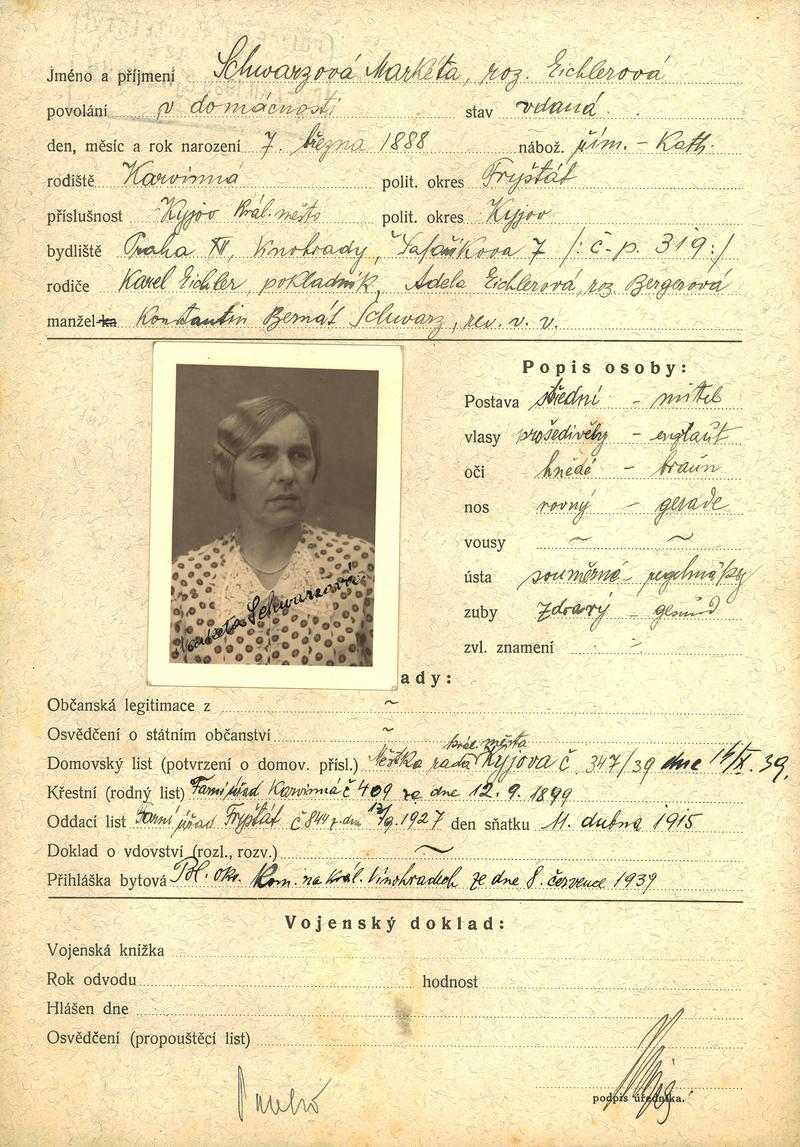 Jméno a příjmení Schwarzová Markéta, roz. Eichlerová
povolání v domácnosti stav vdaná
den, měsíc a rok narození 7. března 1888 nábož. řím. - Kath.
rodiště Karvinná polit. okres Fryštát
příslušnost Kyjov král. město polit. okres Kyjov
bydliště Praha XII, Vinohrady, Šafaříkova 7 /: č. p. 319 :/
rodiče Karel Eichler, pokladník, Adela Eichlerová, roz. Bergerová
manžel-ka Konstantin Bernát Schwarz, rev. v. v.
Popis osoby:
Postava střední - mittel
vlasy prošedivělý - ergraut
oči hnědé - braun
nos rovný - gerade
vousy ~ ~
ústa souměrné - regelmäßig
zuby zdravý - gesund
zvl. znamení
Markéta Schwarzová
ady:
Občanská legitimace z ~
Osvědčení o státním občanství ~
král. města
Domovský list (potvrzení o domov. přísl.) Městská rada Kyjova č 347/39 dne 14/IX. 39.
Křestní (rodný list) Farní úřad Karvinná č 409 ze dne 12. 9. 1899
Oddací list Farní úřad Fryštát č 844 z. dne 12/9. 1927 den sňatku 11. dubna 1915
Doklad o vdovství (rozl., rozv.) ~
Přihláška bytová Pol. okr. Kom. na Král. Vinohradech ze dne 8. července 1939
Vojenský doklad:
Vojenská knížka
Rok odvodu hodnost
Hlášen dne
Osvědčení (propouštěcí list)
podpis úředníka.